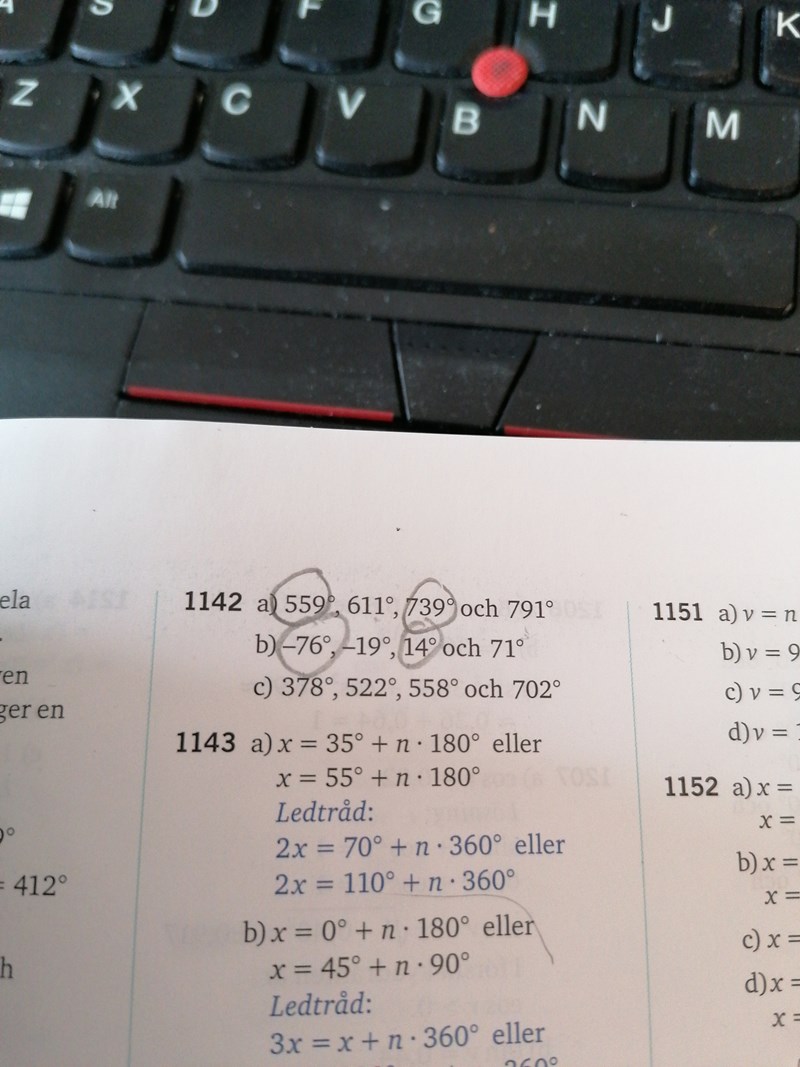 A S D F G H J K
Z X C V B N M
Alt
1142 a) 559°, 611°, 739° och 791°
b) –76°, –19°, 14° och 71°
c) 378°, 522°, 558° och 702°
1143 a) x = 35° + n · 180° eller
x = 55° + n · 180°
Ledtråd:
2x = 70° + n · 360° eller
2x = 110° + n · 360°
b) x = 0° + n · 180° eller
x = 45° + n · 90°
Ledtråd:
3x = x + n · 360° eller
360°
ela
en
ger en
= 412°
h
1151 a) v = n
b) v = 9
c) v = 9
d) v =
1152 a) x =
x =
b) x =
x =
c) x =
d) x =
x =